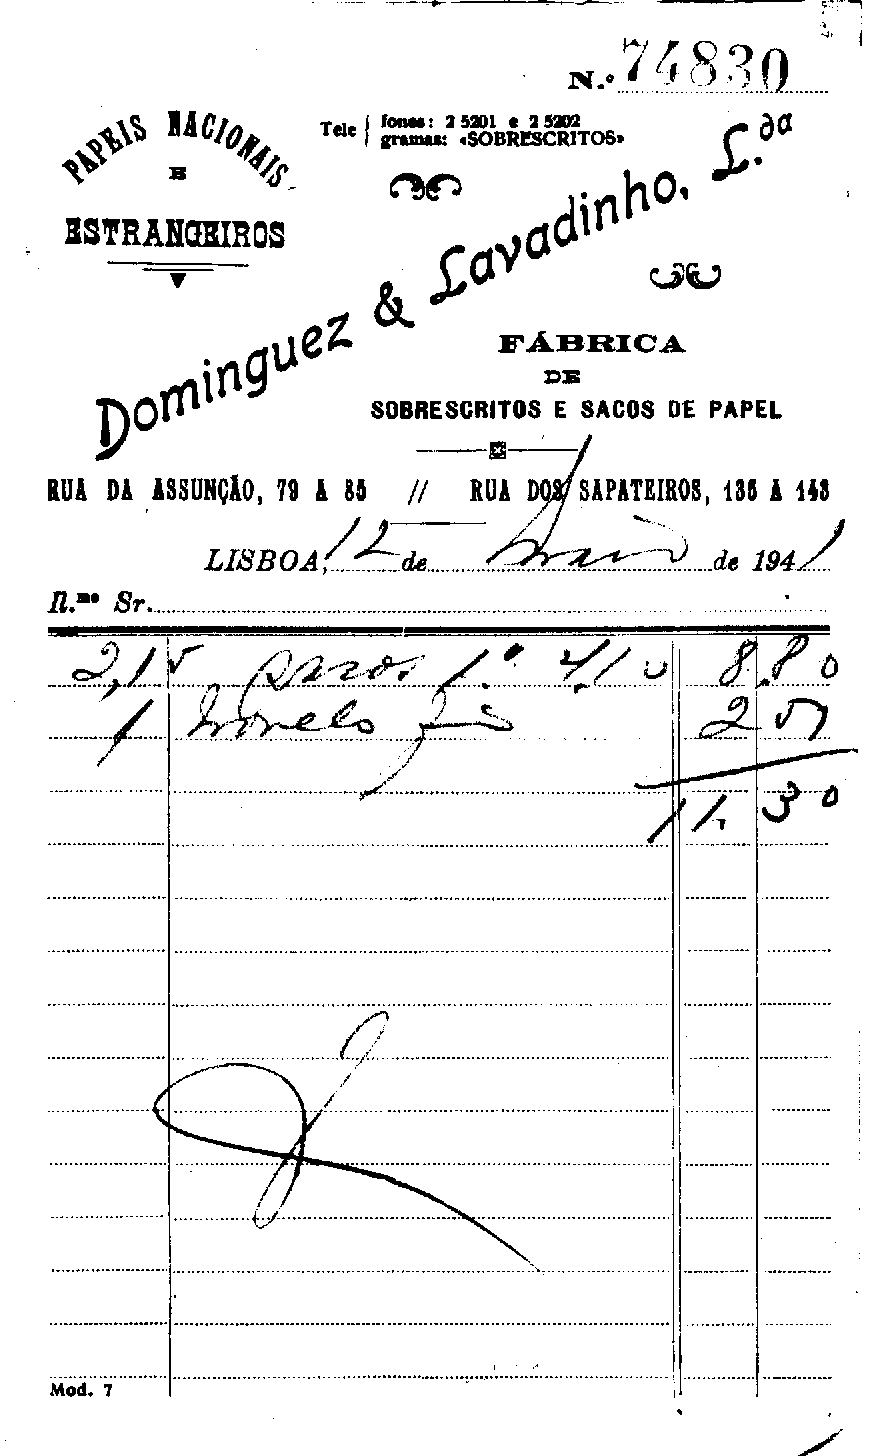 N.º 74830
PAPEIS NACIONAIS
E
ESTRANGEIROS
Tele { fones: 2 5201 e 2 5202
gramas: «SOBRESCRITOS»
Dominguez & Lavadinho, L.da
FÁBRICA
DE
SOBRESCRITOS E SACOS DE PAPEL
RUA DA ASSUNÇÃO, 79 A 85 // RUA DOS SAPATEIROS, 135 A 143
LISBOA, 12 de Maio de 1941
Il.mo Sr.
2,15 sacos 1.º 4,10 8.80
1 novelo fio 2 50
11.30
Mod. 7